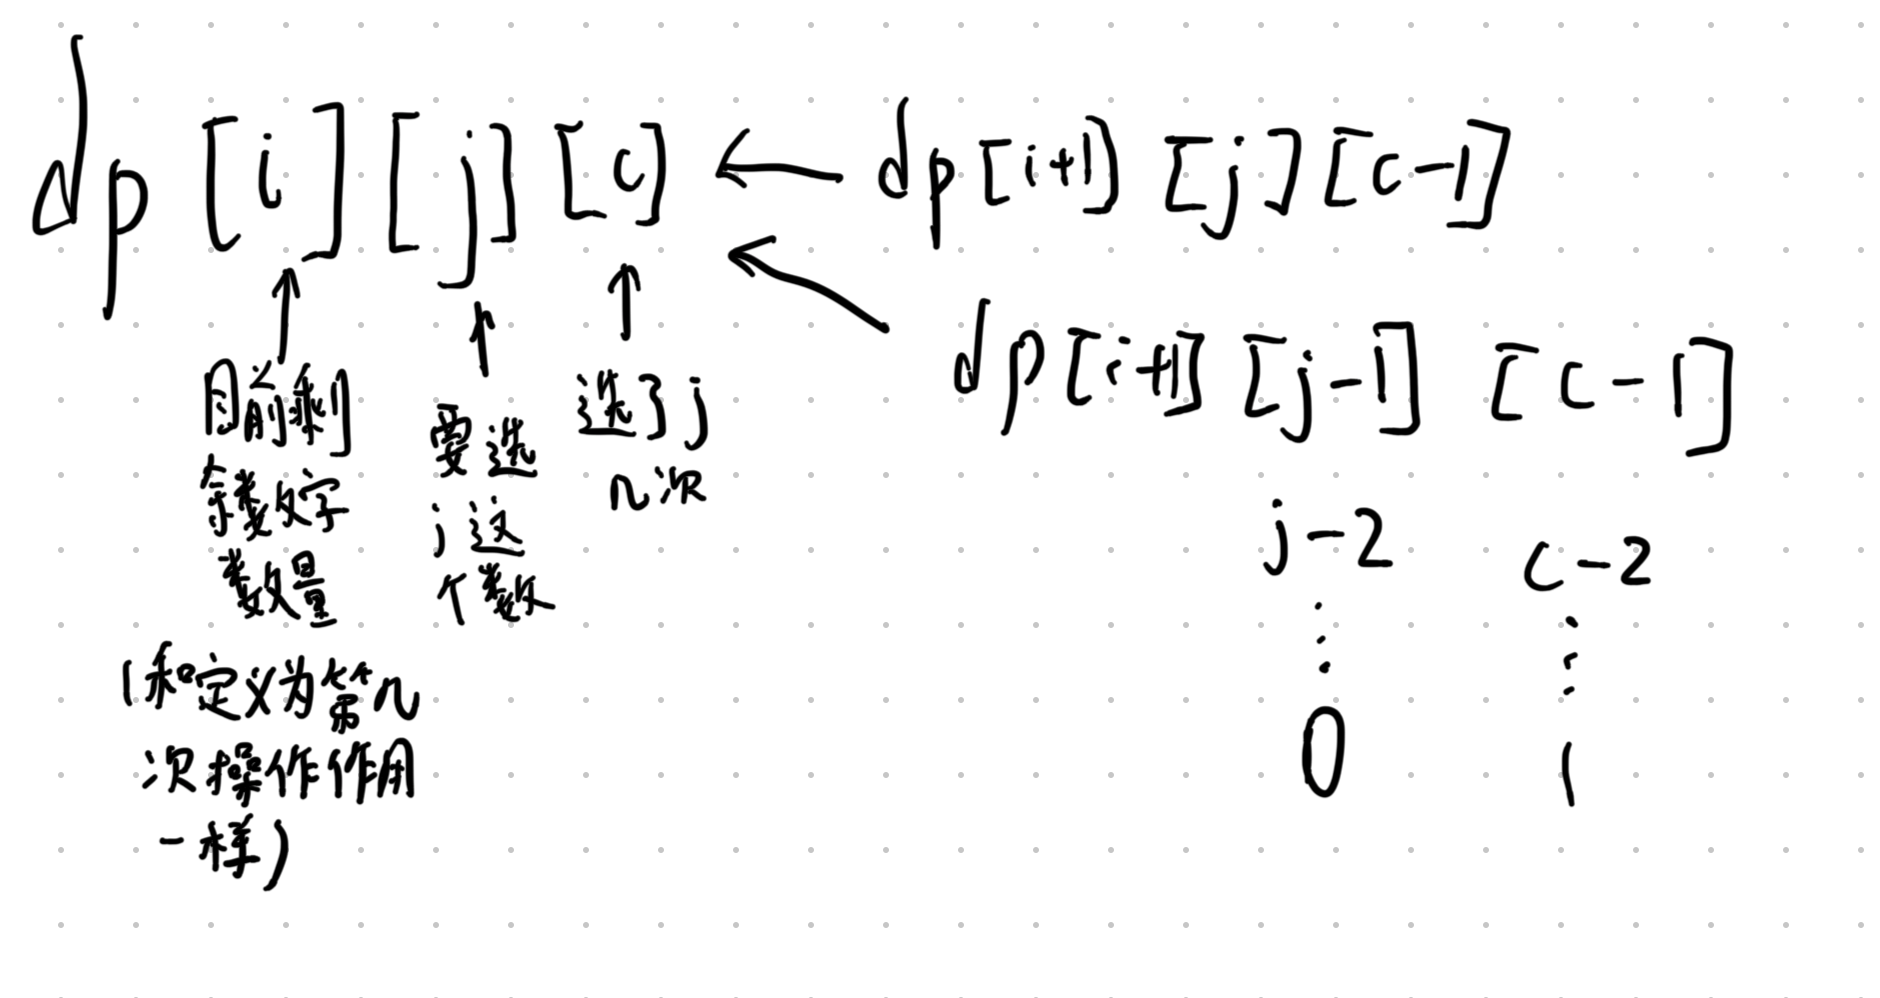 dp[i][j][c] ← dp[i+1][j][c-1]
dp[i+1][j-1][c-1]
j-2 c-2
⋮ ⋮
0 1
目前剩
余数字
数量
(和定义为第几
次操作作用
一样)
要选
j这
个数
选了j
几次